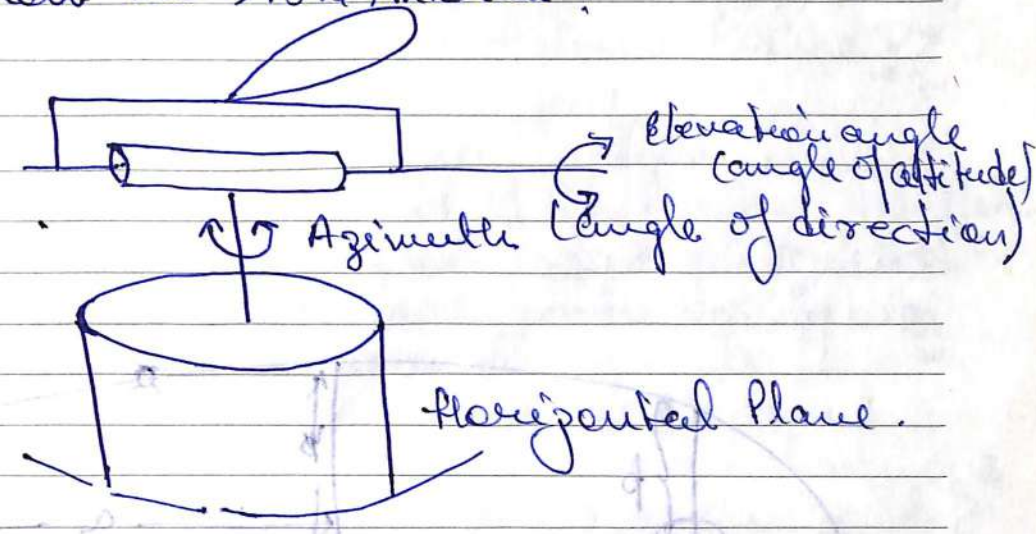 Elevation angle
(angle of altitude)
Azimuth (angle of direction)
Horizontal Plane.